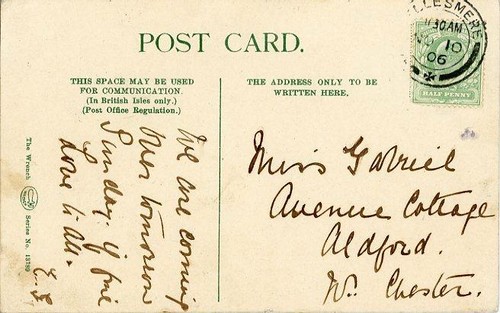 POST CARD.
THIS SPACE MAY BE USED
FOR COMMUNICATION.
(In British Isles only.)
(Post Office Regulation.)
THE ADDRESS ONLY TO BE
WRITTEN HERE.
ELLESMERE
11.30AM
NO 10
06
HALF PENNY
We are coming
over tomorrow
Sunday. if fine
Love to all.
Miss Gabriel
Avenue Cottage
Aldford.
Nr. Chester.
The Wrench
Series No.